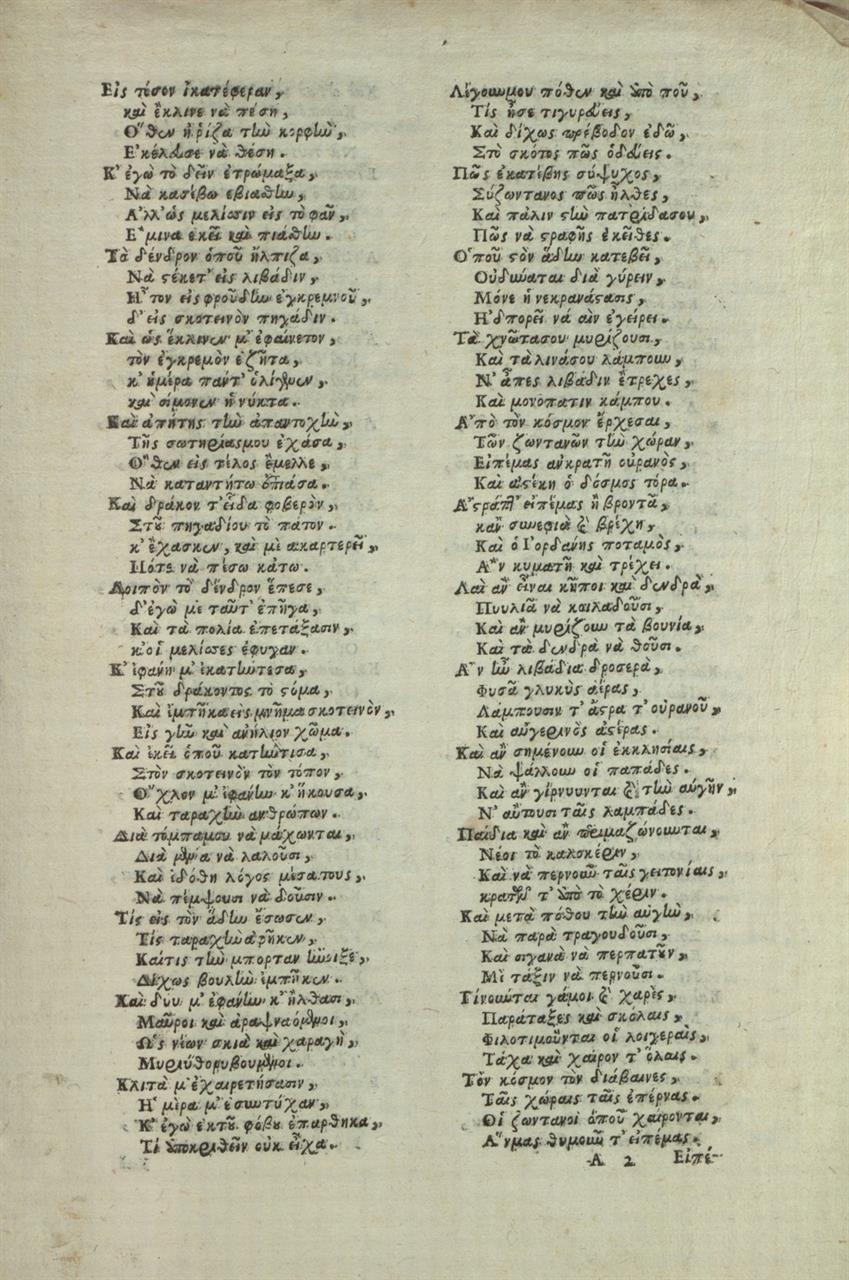 Εἰς τόσον ἐκατέφεραν,
καὶ ἔκλινε νὰ πέση,
Ὅθεν ἡ ῥίζα τὴν κορφὴν,
Ἐκέλευσε νὰ θέση.
Κ' ἐγὼ τὸ δεῖν ἐτρώμαξα,
Νὰ κασέβω εβιάθην,
Ἀλλ' ὡς μελίσσιν εἰς τὸ φᾶν,
Ἔμινα εκεῖ καὶ πιάθην.
Τὰ δένδρον ὁποῦ ἤλπιζα,
Νὰ στέκετ' εἰς λιβάδιν,
Ἦτον εἰς φροῦδιν ἐγκρεμνοῦ,
δ' εἰς σκοτεινὸν πηγάδιν.
Καὶ ὡς ἔκλινεν μ' ἐφαίνετον,
τὸν ἐγκρεμὸν ἐζῆτα,
κ' ἡμέρα παντ' ὀλίγευεν,
καὶ σίμονεν ἡ νύκτα.
Καὶ ἀπήτης τὴν ἀπαντοχὴν,
Τῆς σωτηρίας μου ἐχάσα,
Ὅθεν εἰς τέλος ἔμελλε,
Νὰ καταντήτω ὅπιάσα.
Καὶ δράκον τ' εἶδα φοβερὸν,
Στοῦ πηγαδίου τὸ πάτον.
κ' ἔχασκεν, καὶ μὲ ακαρτερεῖ,
Πότε νὰ πέσω κάτω.
Λοιπὸν τὸ δένδρον ἔπεσε,
δ' ἐγὼ με ταῦτ' ἐπῆγα,
Καὶ τὰ πολία ἐπετάξασιν,
κ' οἱ μελίσσες ἐφυγαν.
Κ' ἐφανη μ' ἐκατήντεσα,
Στοῦ δράκοντος τὸ στόμα,
Καὶ ἐμπῆκα εἰς μνῆμα σκοτεινὸν,
Εἰς γῆν καὶ ανήλιον χῶμα.
Καὶ ἐκεῖ ὁποῦ κατήντισα,
Στὸν σκοτεινὸν τὸν τόπον.
Ὄχλον μ' ἐφάνην κ' ἤκουσα,
Καὶ ταραχὴν ανθρώπων.
Διὰ τόμπαμου νὰ μάχωνται,
Διὰ μένα νὰ λαλοῦσι,
Καὶ ἐδόθη λόγος μέσα τους,
Νὰ πέμψουσι νὰ δοῦσιν.
Τίς εἰς τὸν ἅδην ἔσωσεν,
Τίς ταραχὴν αφῆκεν.
Καίτις τὴν μπόρταν ἤνοιξε,
Δίχως βουλὴν ἐμπῆκεν.
Καὶ δυὸ μ' ἐφάνην κ' ἤλθασι,
Μαῦροι καὶ ἀραψναόμενοι,
Ὡς νέων σκιὰ καὶ χαραγὴ,
Μυριόθορυβουμενοι.
Κλιτὰ μ' ἐχαιρετήσασιν,
Ἥμερα μ' ἐσυντύχαν,
Κ' ἐγὼ ἐκ τοῦ φόβου ἐπαρθηκα,
Τί ὑποκριθεῖν οὐκ εἶχα.
Λέγουσιμου πόθεν καὶ ὑπὸ ποῦ,
Τίς ἦσε τί γυρεύεις,
Καὶ δίχως πρέβοδον ἐδῶ,
Στὸ σκότος πῶς ὁδεύεις.
Πῶς ἐκατέβης σύψυχος,
Σύζωντανος πῶς ἦλθες,
Καὶ πάλιν τὴν πατρίδασου,
Πῶς νὰ στραφῆς ἐκεῖθες.
Ὁποῦ στὸν ἅδην κατεβεῖ,
Οὐδύναται διὰ γύρειν,
Μόνε ἡ νεκρανάστασις,
Ἠδπορεῖ νά αὐν ἐγείρει.
Τὰ χνῶτασου μυρίζουσι,
Καὶ τὰ λινάσου λάμπουν,
Ν' ἅπες λιβάδιν ἔτρεχες,
Καὶ μονοπατιν κάμπου.
Ἀπὸ τὸν κόσμον ἔρχεσαι,
Τῶν ζωντανῶν τὴν χώραν,
Εἰπέμας ανκρατῆ οὐρανὸς,
Καὶ αστέκη ὁ δόσμος τόρα.
Ἀστράπτ' εἰπέμας ἢ βροντᾶ,
κᾂν συνεφιᾶ καὶ βρέχη,
Καὶ ὁ Ἰορδάνης ποταμὸς,
Ἂν κυματῆ καὶ τρέχει.
Λαὶ ἂν εἶναι κῆποι καὶ δενδρὰ,
Πυυλιᾶ νὰ κοιλαδοῦσι,
Καὶ ἂν μυρίζουν τὰ βουνία,
Καὶ τὰ δενδρα νὰ θοῦσι.
Ἂν ἦν λιβάδια δροσερὰ,
Φυσᾶ γλυκὺς ἀέρας,
Λάμπουσιν τ' ἄστρα τ' οὐρανοῦ,
Καὶ αὐγερινὸς ἀστέρας.
Καὶ ἂν σημένουν οἱ ἐκκλησίαις,
Νὰ ψάλλουν οἱ παπάδες.
Καὶ ἂν γέρνυνται καὶ τὴν αὐγῆν,
Ν' αὕτουσι ταῖς λαμπάδες.
Παίδια καὶ ἂν πριμαζώνουνται,
Νέοι τὸ καλοκέριν,
Καὶ νὰ περνοῦν ταῖς γειτονίαις,
κρατῶν τ' ὑπὸ τὸ χέριν.
Καὶ μετὰ πόθου τὴν αὐγὴν,
Νὰ παρὰ τραγουδοῦσι,
Καὶ σιγανὰ νὰ περπατοῦν,
Μὲ τάξιν νὰ περνοῦσι.
Γίνουνται γάμοι καὶ χαρὲς,
Παράταξες καὶ σκόλαις,
Φιλοτιμοῦνται οἱ λοιγεραὶς,
Τάχα καὶ χαίρον τ' ὅλαις.
Τὸν κόσμον τὸν διάβαινες,
Ταῖς χώραις ταῖς ἐπέρνας.
Οἱ ζωντανοὶ ὁποῦ χαίρονται,
Ἄνμας θυμοῦν τ' εἰπέμας.
Α 2 Εἰπέ